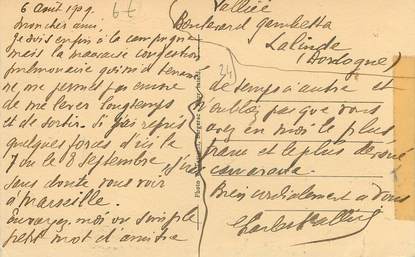 6 Août 1909.
Mon cher ami.
Je suis enfin à la campagne
mais la mauvaise congestion
pulmonaire qui m'a tenu
ne me permet pas encore
de me lever longtemps
et de sortir. Si j'ai repris
quelques forces d'ici le
7 ou le 8 Septembre j'irai
sans doute vous voir
à Marseille.
Envoyez moi un simple
petit mot d'amitié
Vallier
Boulevard Gambetta
Lalinde
(Dordogne)
24
6 €
de temps à autre et
n'oubliez pas que vous
avez en moi le plus
franc et le plus dévoué
camarade.
Bien cordialement à vous
Charles Vallier